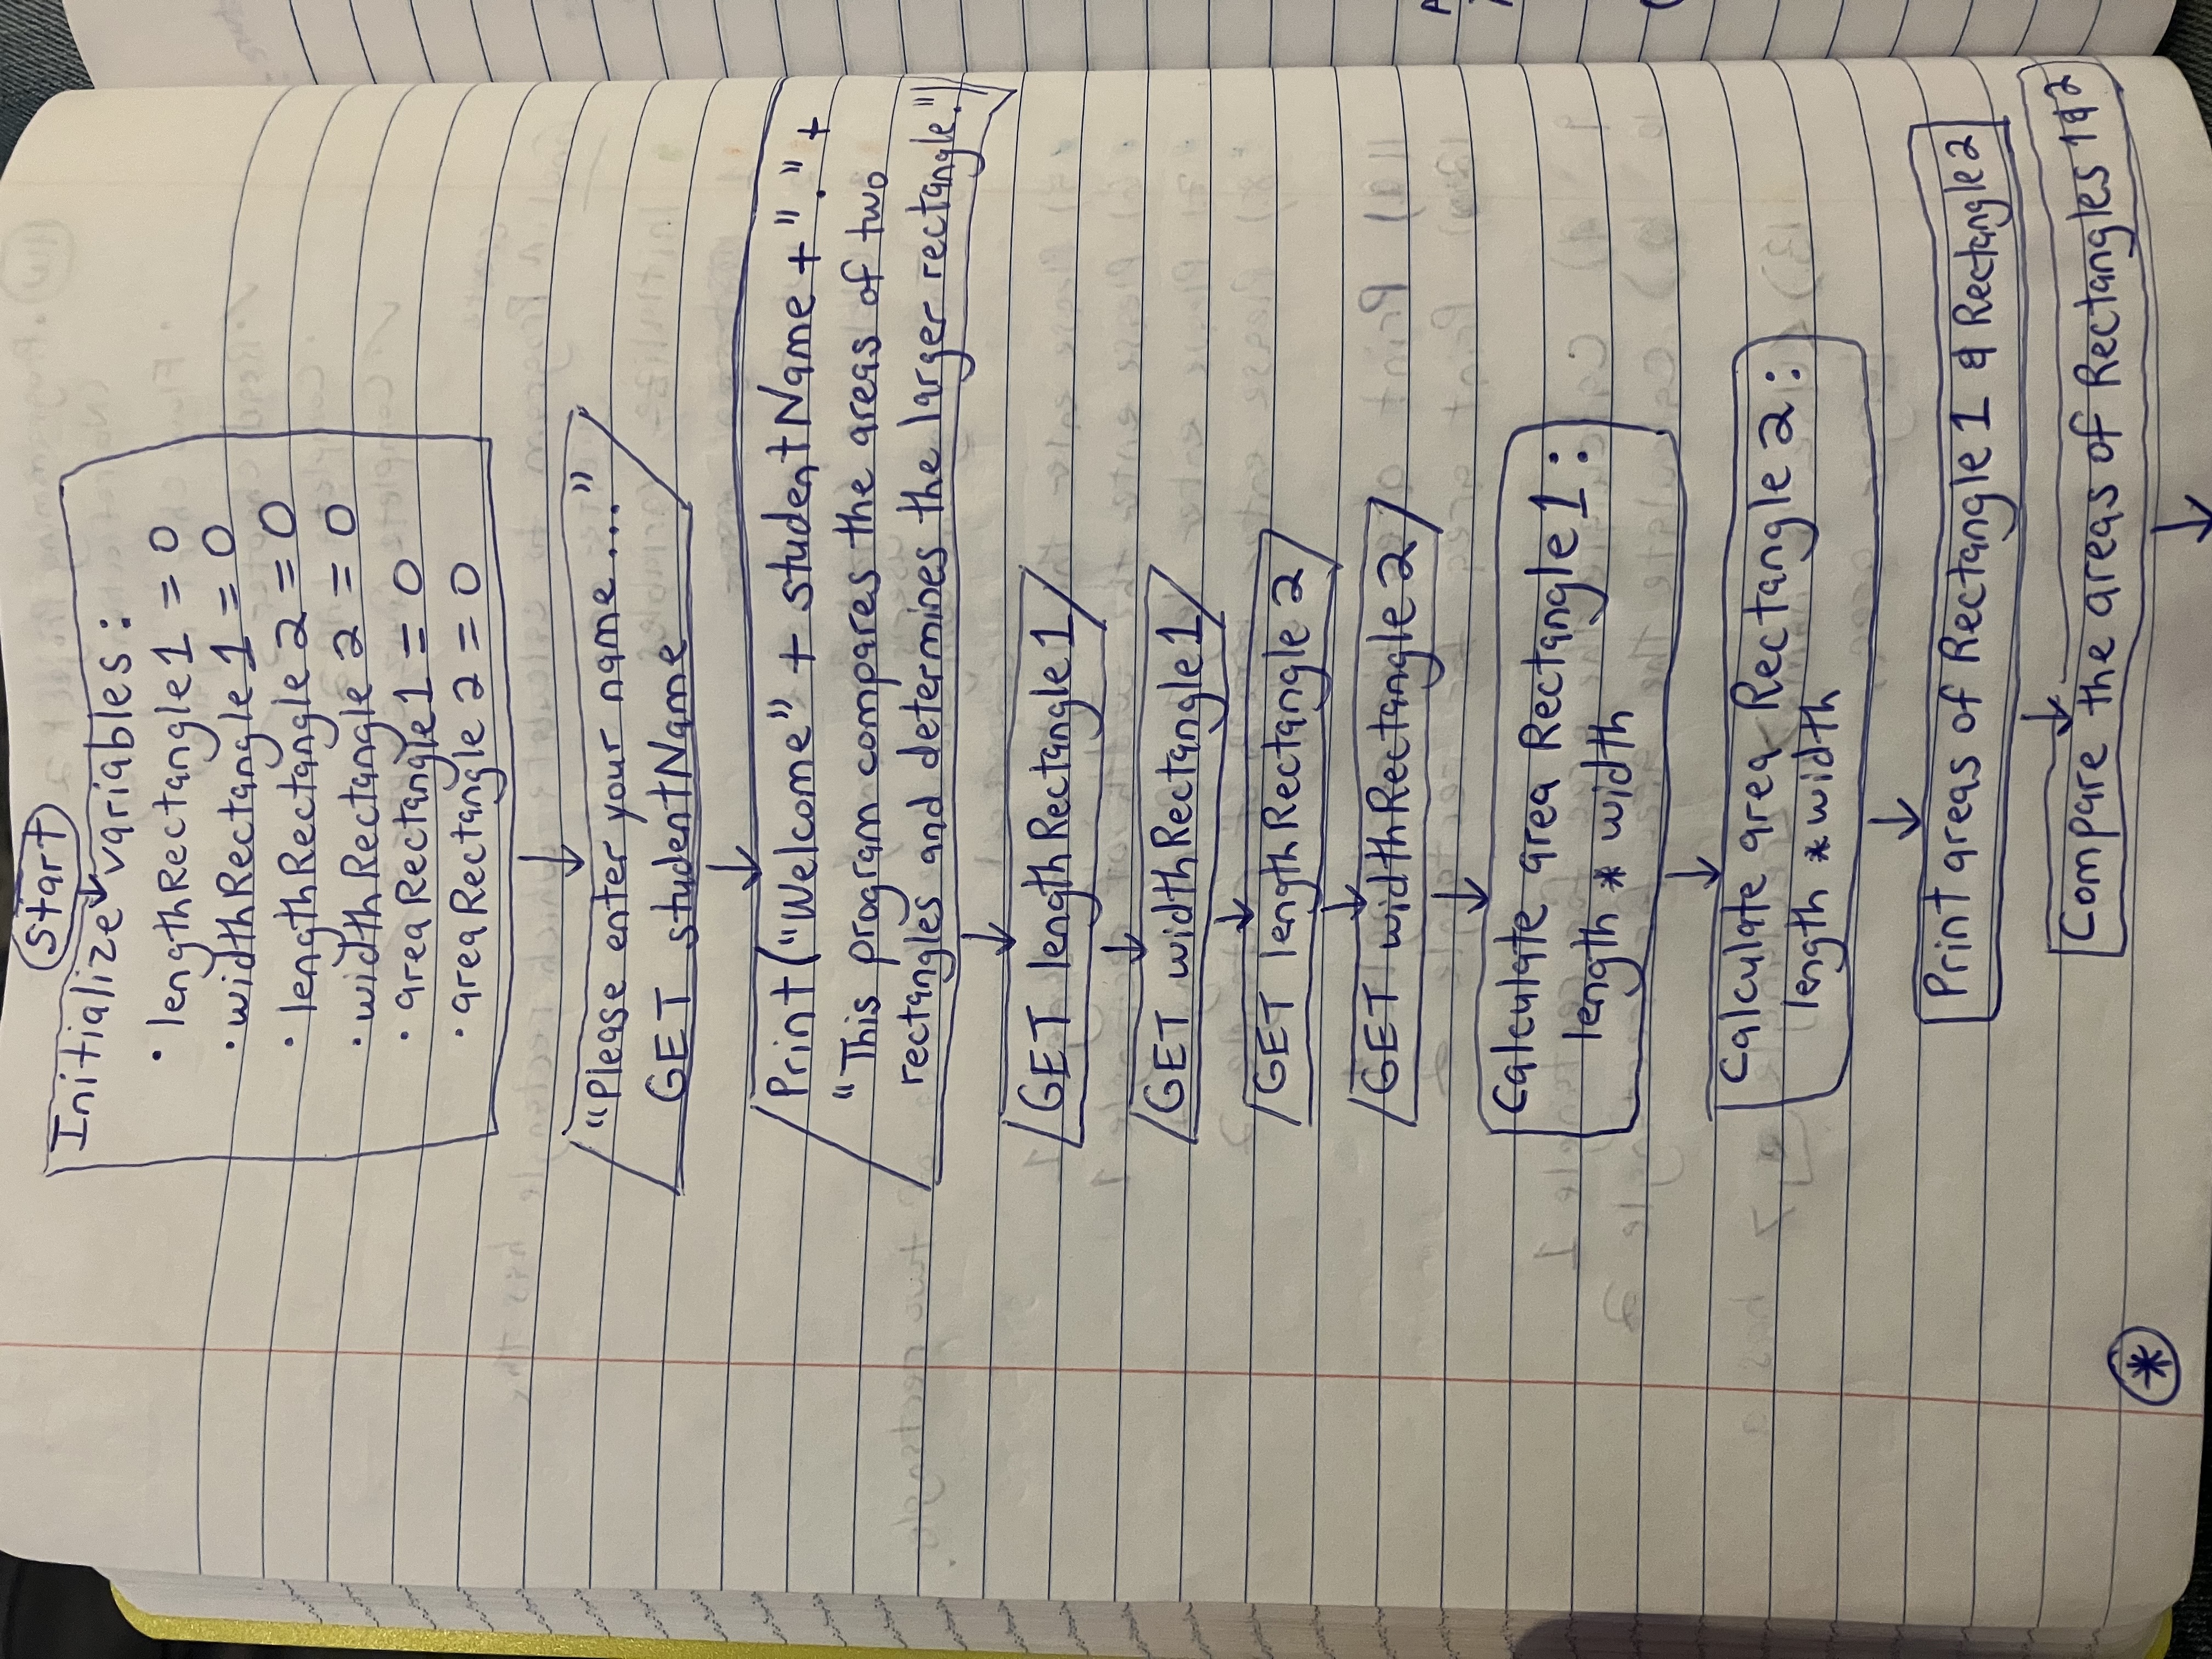 Start
Initialize variables:
• lengthRectangle1 = 0
• widthRectangle 1 = 0
• lengthRectangle 2 = 0
• widthRectangle 2 = 0
• areaRectangle1 = 0
• areaRectangle 2 = 0
"Please enter your name..."
GET studentName
Print("Welcome" + studentName + "." +
"This program compares the areas of two
rectangles and determines the larger rectangle.")
GET lengthRectangle1
GET widthRectangle1
GET lengthRectangle 2
GET widthRectangle 2
Calculate area Rectangle 1:
length * width
Calculate area Rectangle 2:
length * width
Print areas of Rectangle 1 & Rectangle 2
Compare the areas of Rectangles 1 & 2
*